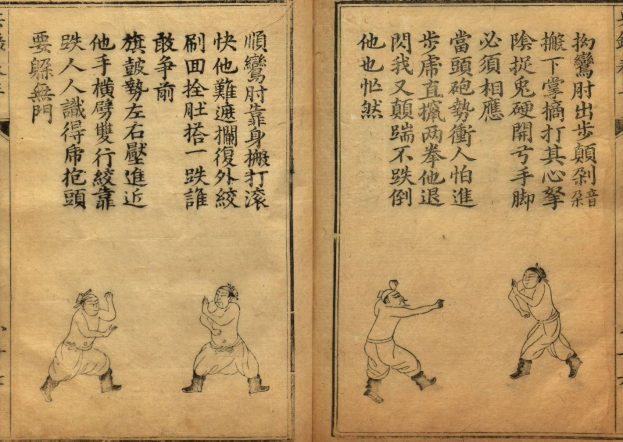 拗鸞肘出步顛剁音朶
搬下掌摘打其心拏
陰捉兎硬開弓手脚
必須相應
當頭砲勢衝人怕進
步虎直攛两拳他退
閃我又顛踹不跌倒
他也忙然
順鸞肘靠身搬打滚
快他難遮攔復外絞
刷回拴肚搭一跌誰
敢争前
旗鼓勢左右壓進近
他手橫劈雙行絞靠
跌人人識得虎抱頭
要躲無門